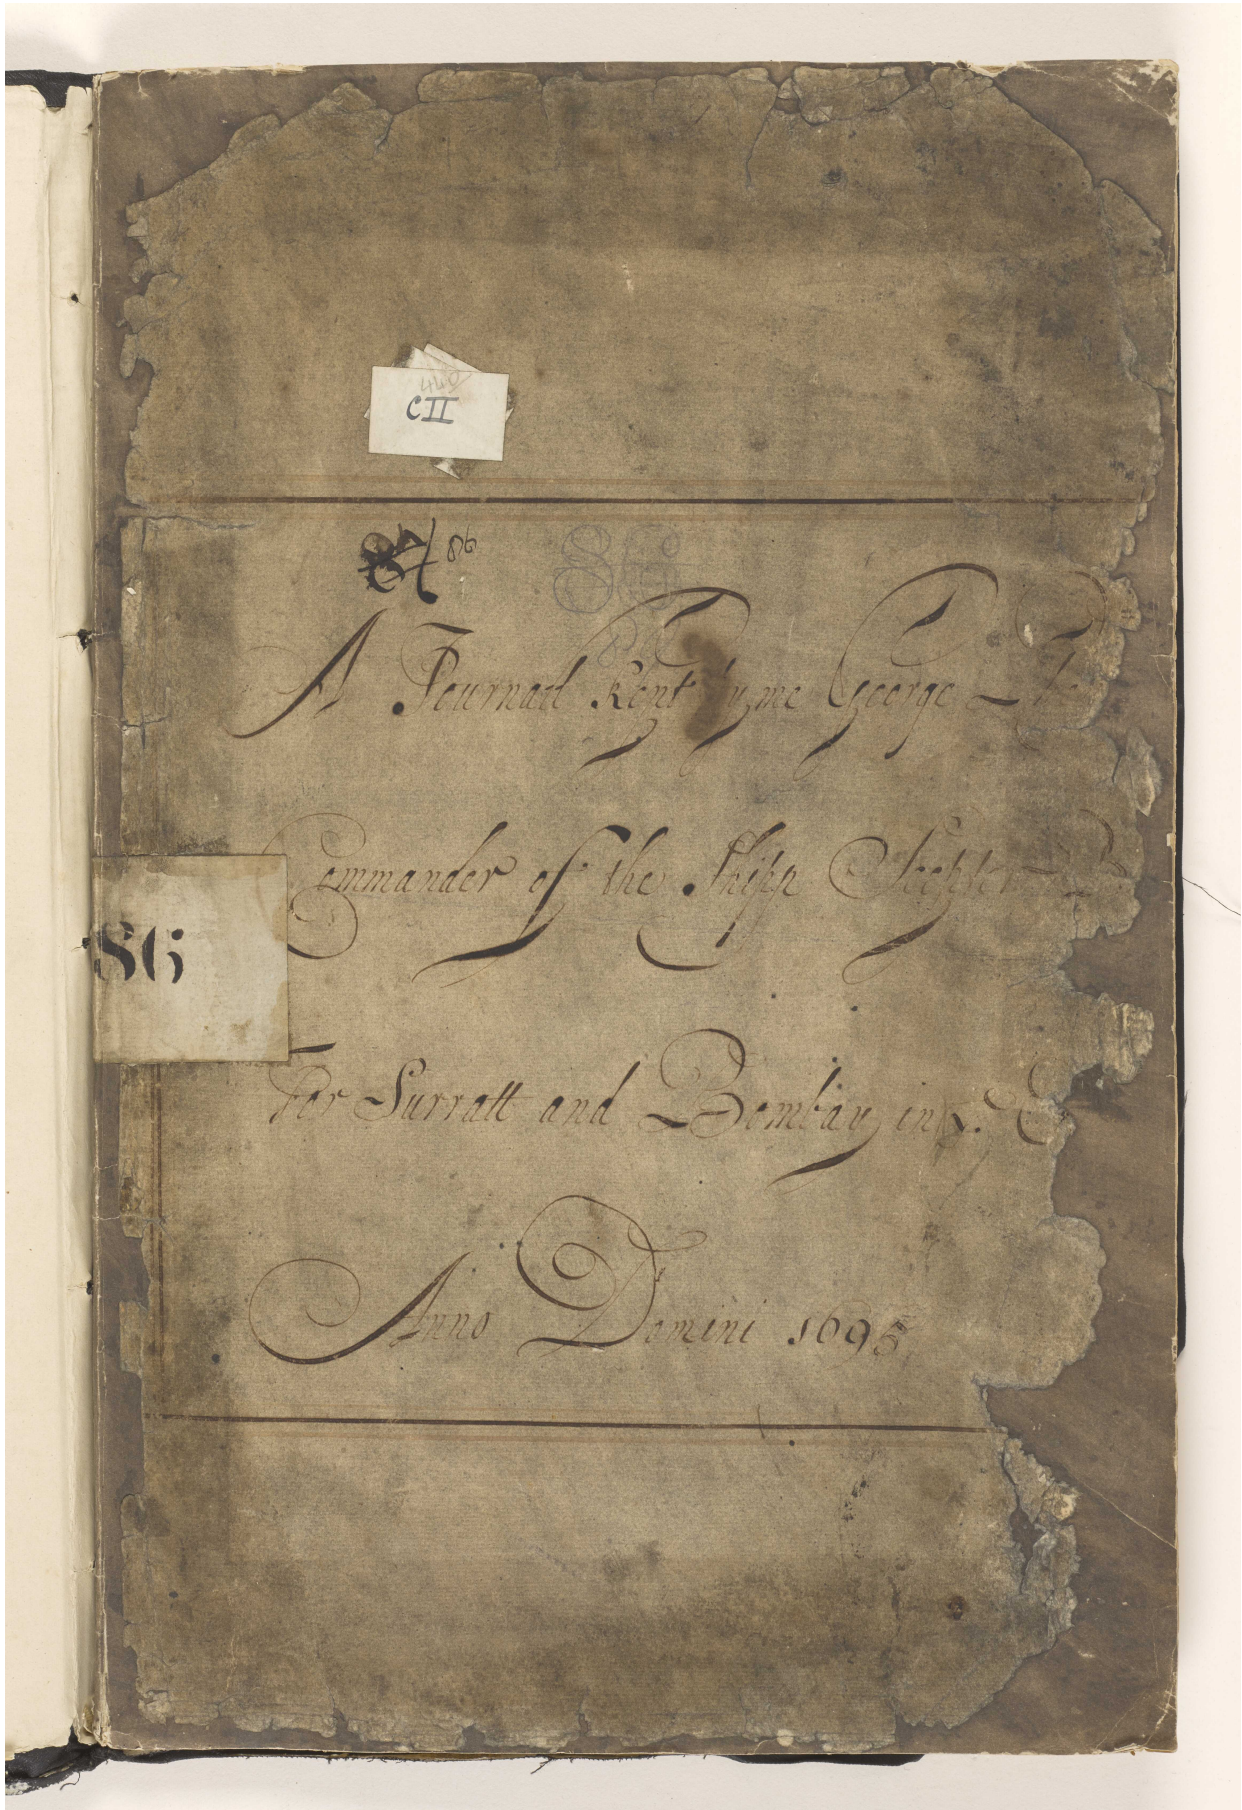 440
CII
87 86
86
86
A Journall Kept by me George
Commander of the Shipp Scepter
86
For Surratt and Bombay in
Anno Domini 1695